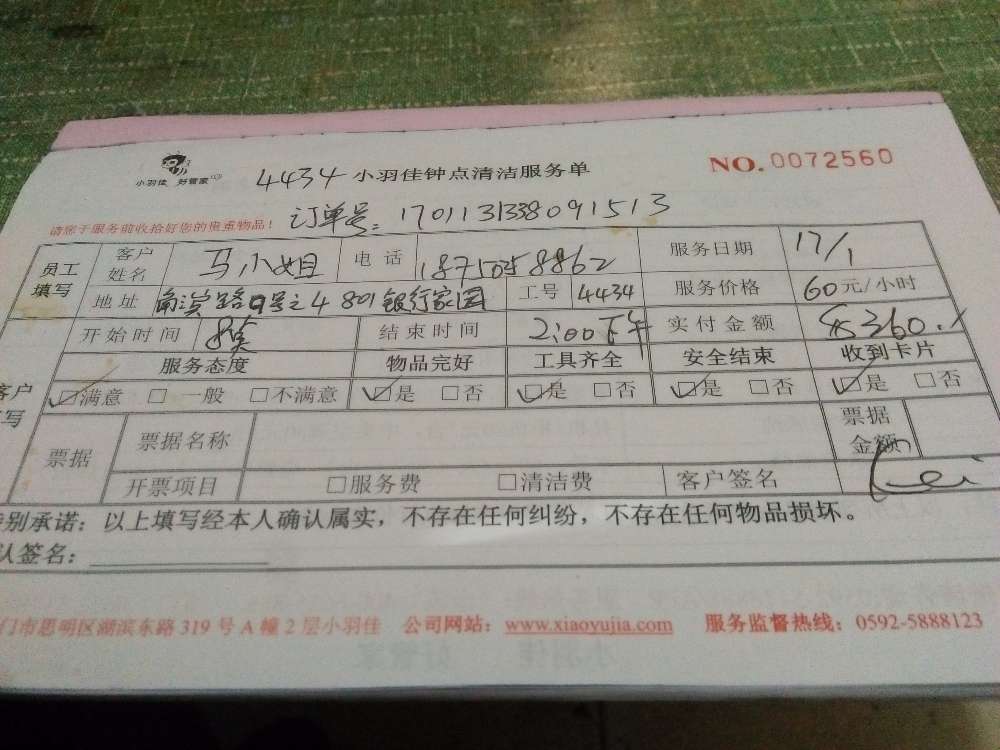 小羽佳 好管家 4434 小羽佳钟点清洁服务单 NO.0072560
请您于服务前收拾好您的贵重物品! 订单号:1701131338091513
员工填写 客户姓名 马小姐 电话 服务日期 17/1
地址 4 801 银行家园 工号 4434 服务价格 60元/小时
开始时间 结束时间 2:00下午 实付金额 360.
服务态度 物品完好 工具齐全 安全结束 收到卡片
☑满意 □一般 □不满意 ☑是 □否 ☑是 □否 ☑是 □否 ☑是 □否
票据 票据名称 票据金额
开票项目 □服务费 □清洁费 客户签名
别承诺:以上填写经本人确认属实,不存在任何纠纷,不存在任何物品损坏。
认签名:
门市思明区湖滨东路 319 号 A 幢 2 层小羽佳 公司网站:www.xiaoyujia.com 服务监督热线:0592-5888123